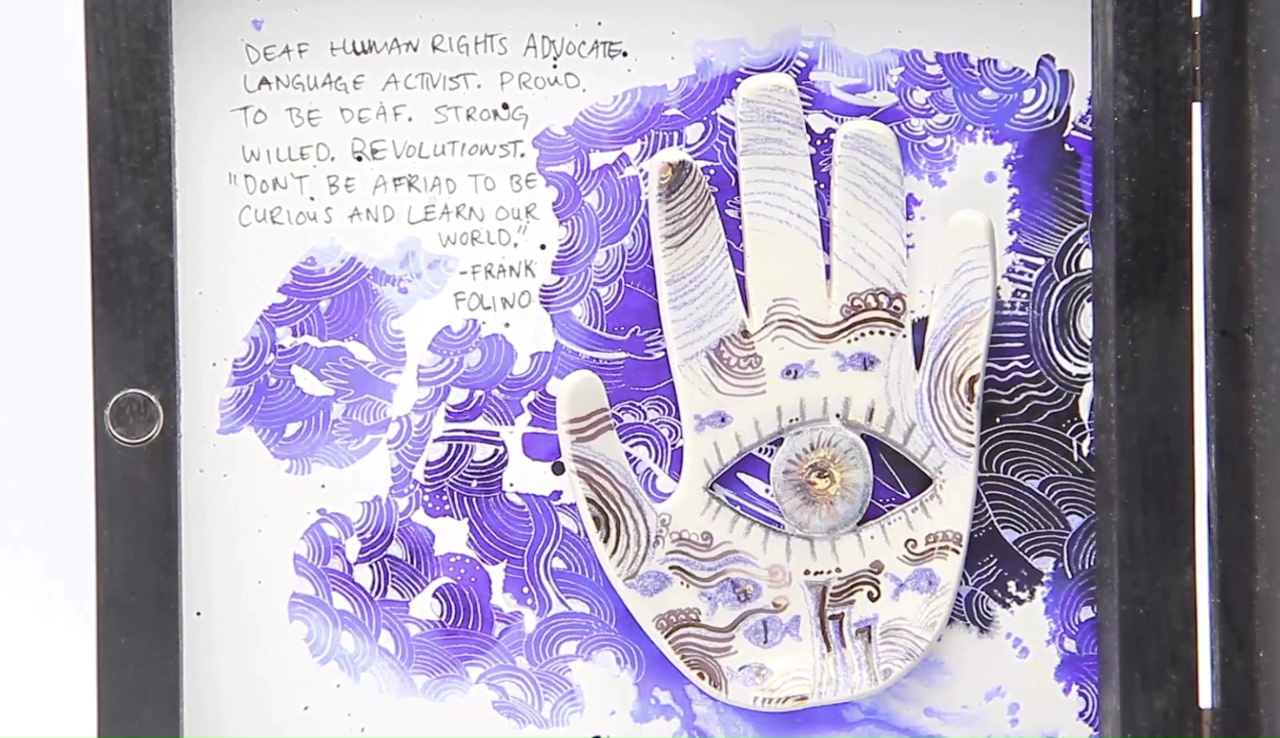 DEAF HUMAN RIGHTS ADVOCATE.
LANGUAGE ACTIVIST. PROUD.
TO BE DEAF. STRONG
WILLED. REVOLUTIONST.
"DON'T BE AFRIAD TO BE
CURIOUS AND LEARN OUR
WORLD."
-FRANK
FOLINO